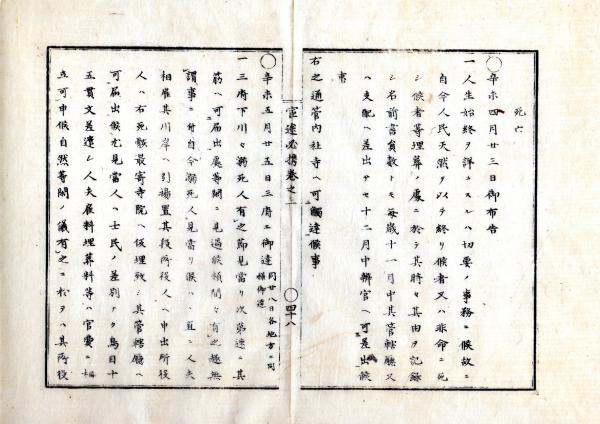 死亡
◯辛未四月廿三日御布告
一人生始終ヲ詳ニスルハ切要ノ事務ニ候故ニ
自今人民天然ヲ以テ終リ候者又ハ非命ニ死
シ候者等埋葬ノ處ニ於テ其時々其由ヲ記録
シ名前書員數トモ毎歳十一月中其管轄廳又
ハ支配ヘ差出サセ十二月中辨官ヘ可差出候
事
右之通管内社寺ヘ可觸達候事
官途必携巻之二
◯四十八
◯辛未五月廿五日三府エ御達 同廿八日各地方エ同様御達
一三府下川々溺死人有之節見當リ次第速ニ其
筋ヘ可届出處等閑ニ見過候類間々有之趣無
謂事ニ付自今溺死人見當リ候ハヽ直ニ人夫
相雇其川岸ヘ引揚置其段所役人ヘ申出所役
人ハ右死骸最寄寺院ヘ仮埋致シ其管轄廳ヘ
可届出候尤見當人ハ士民ノ差別ナク鳥目十
五貫文差遣シ人夫雇料埋葬料等ハ官費ニ相
立可申候自然等閑ノ儀有之ニ於テハ其所役